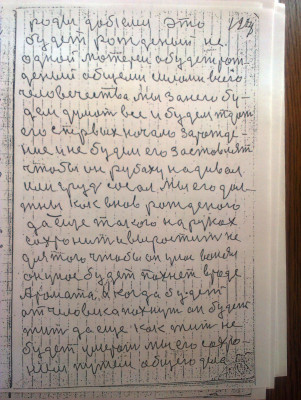 роды добьемы Это 119
будет рожденый не
одной матерей а будет рож
деный общеми силами всего
человечества мы за него бу-
дем думать все и будем ждат
его с первых начало зарожде-
ние и не будем его заставлят
чтобы он рубаху надивал
или груд сосал. Мы его дол-
жны как внов рожденого
да еще такого на руках
сохронит и выростит не
для того чтобы он умас вонял
он у нас будет пахнет вроде
Аромата, А когда будет
от человека пахнут он будет
жит да еще как жит не
будет умерат мы его сохро-
ним путем общего дела